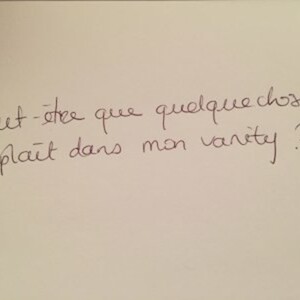 ut-être que quelquechos
plaît dans mon vanity ?